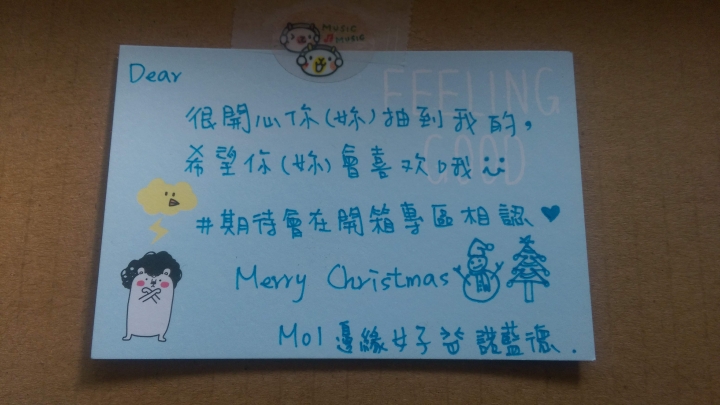 MUSIC
MUSIC
FEELING
GOOD
Dear
很開心你(妳)抽到我的,
希望你(妳)會喜欢哦
#期待會在開箱專區相認♥
Merry Christmas
邊緣女子 諾藍德.